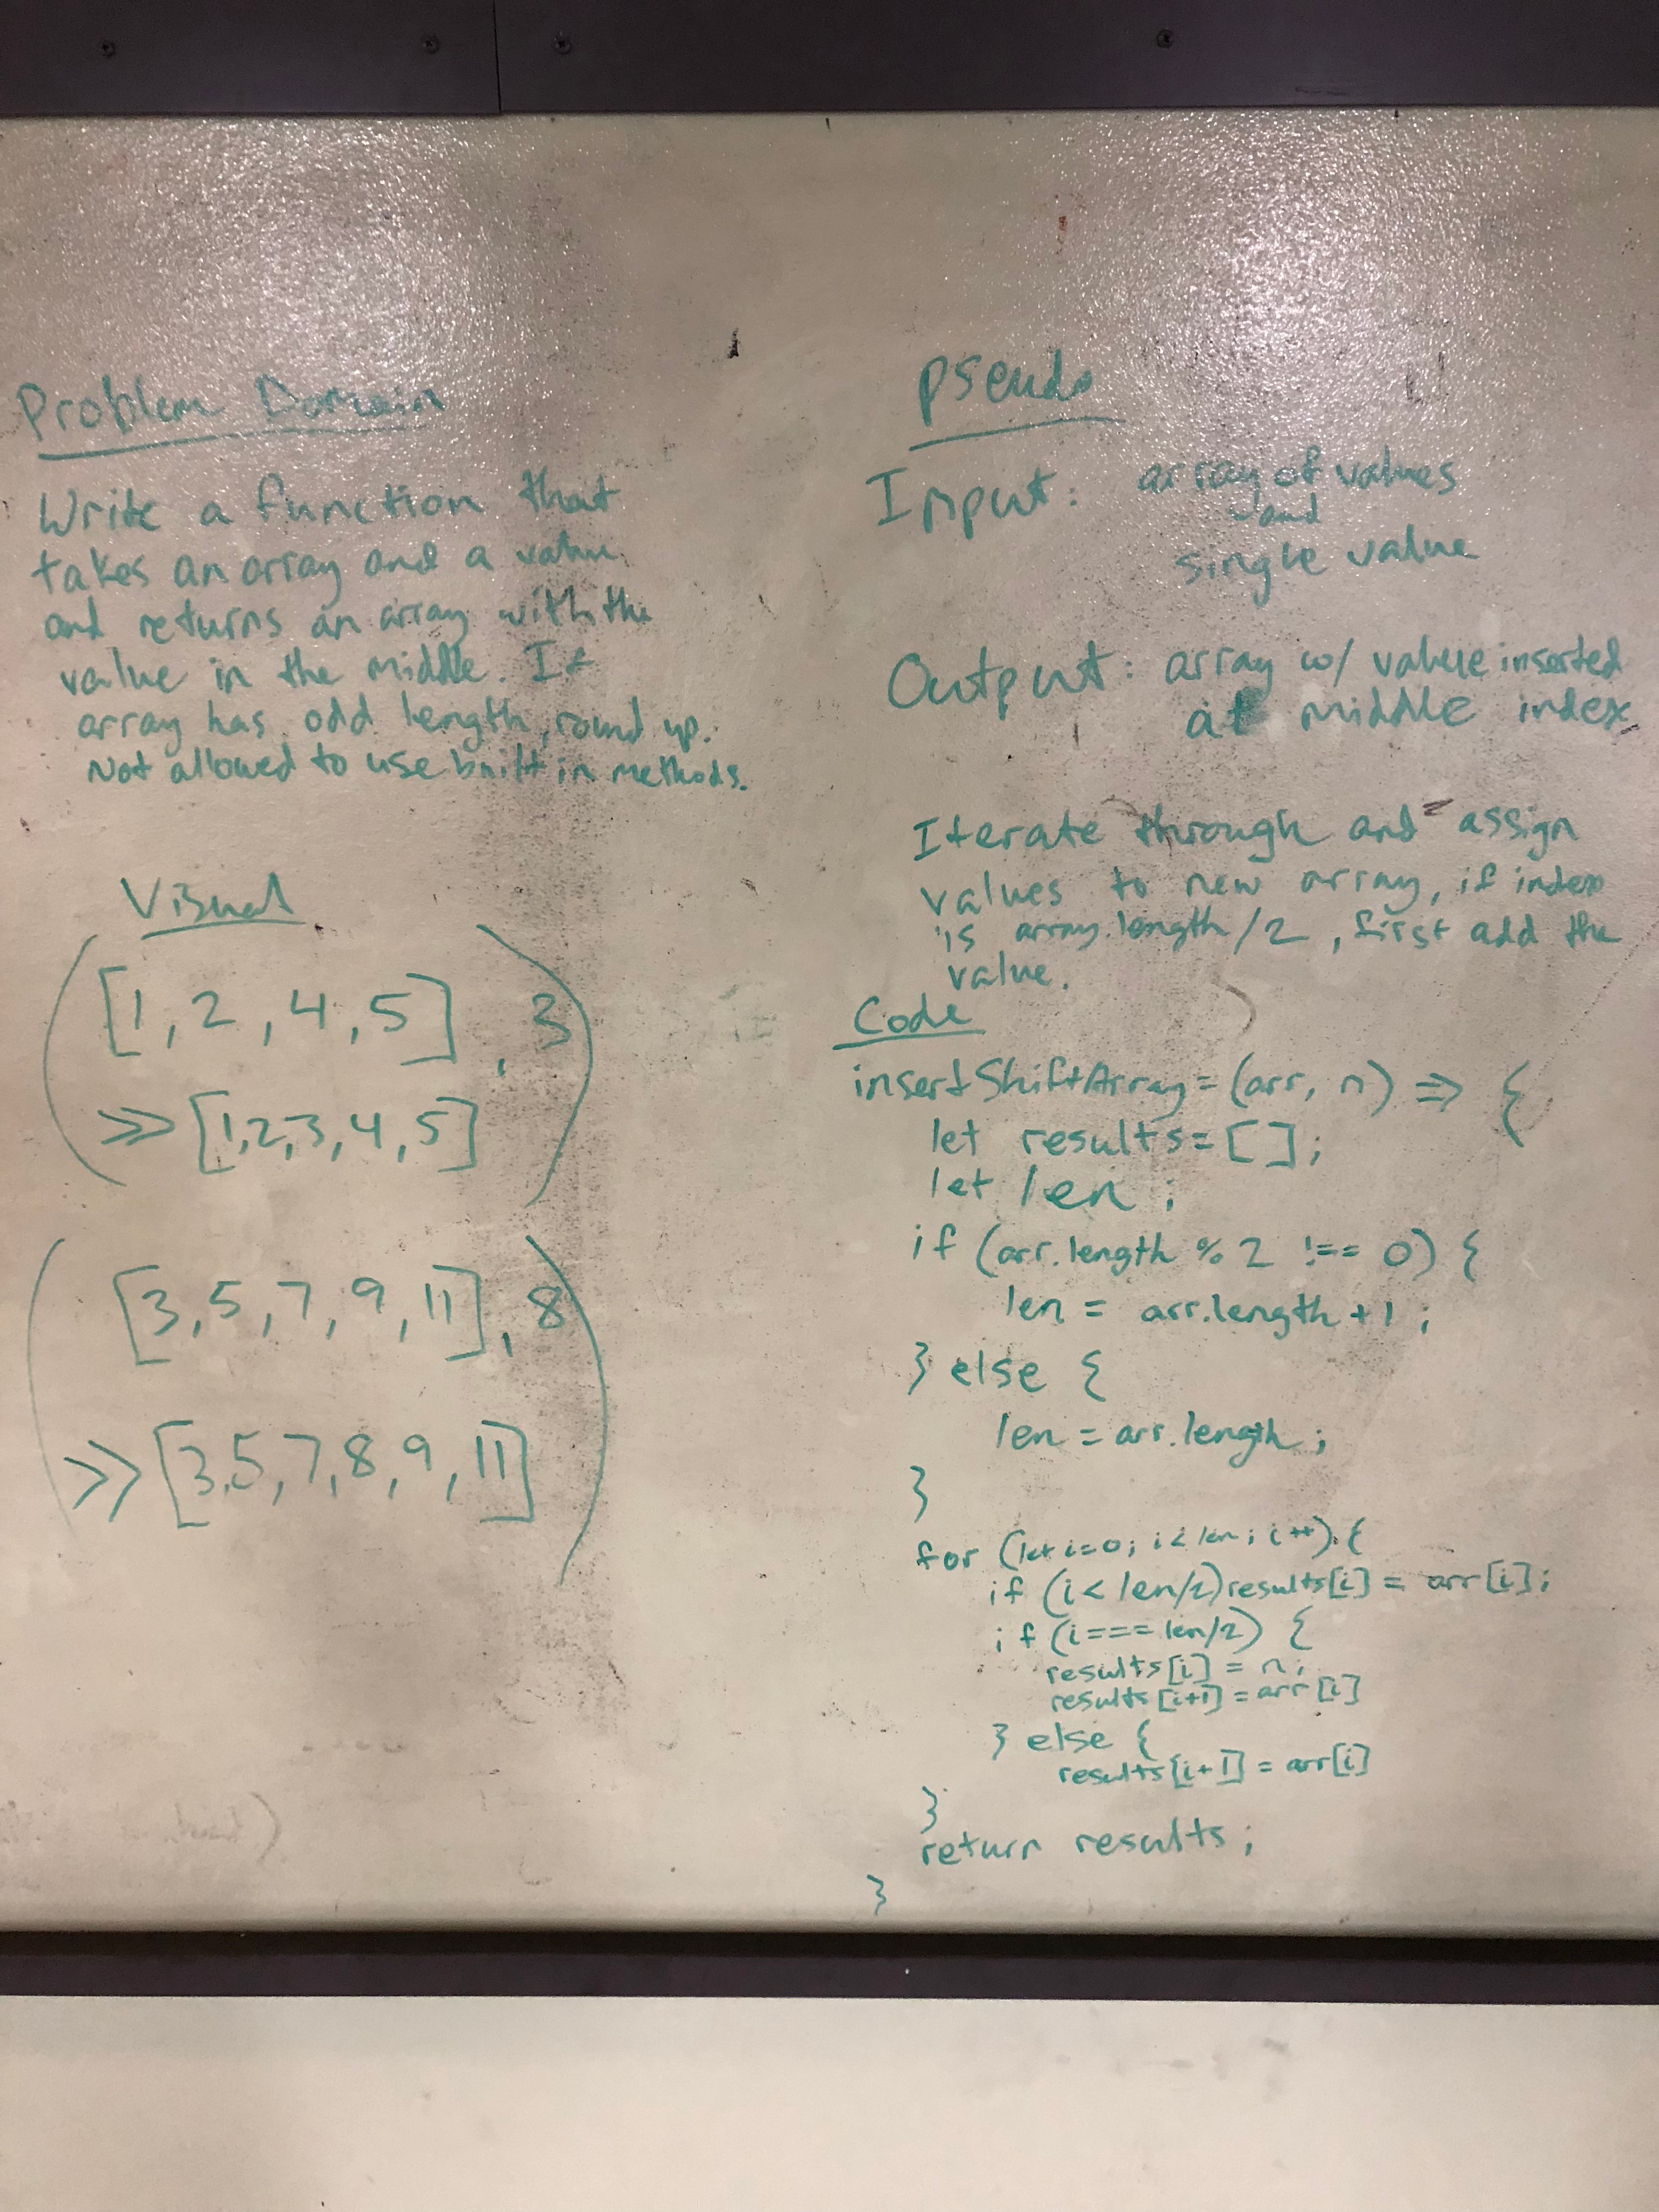 Problem Domain
Write a function that
takes an array and a value
and returns an array with the
value in the middle. If
array has odd length, round up.
Not allowed to use built in methods.
Visual
([1, 2, 4, 5], 3)
>> [1,2,3,4,5]
([3, 5, 7, 9, 11], 8)
>> [3,5,7,8,9,11]
pseudo
Input: array of values
and
single value
Output: array w/ value inserted
at middle index
Iterate through and assign
values to new array, if index
is array.length/2, first add the
value.
Code
insertShiftArray = (arr, n) => {
let results = [];
let len;
if (arr.length % 2 !== 0) {
len = arr.length + 1;
} else {
len = arr.length;
}
for (let i=0; i < len; i++) {
if (i < len/2) results[i] = arr[i];
if (i === len/2) {
results[i] = n;
results[i+1] = arr[i]
} else {
results[i+1] = arr[i]
}
return results;
}